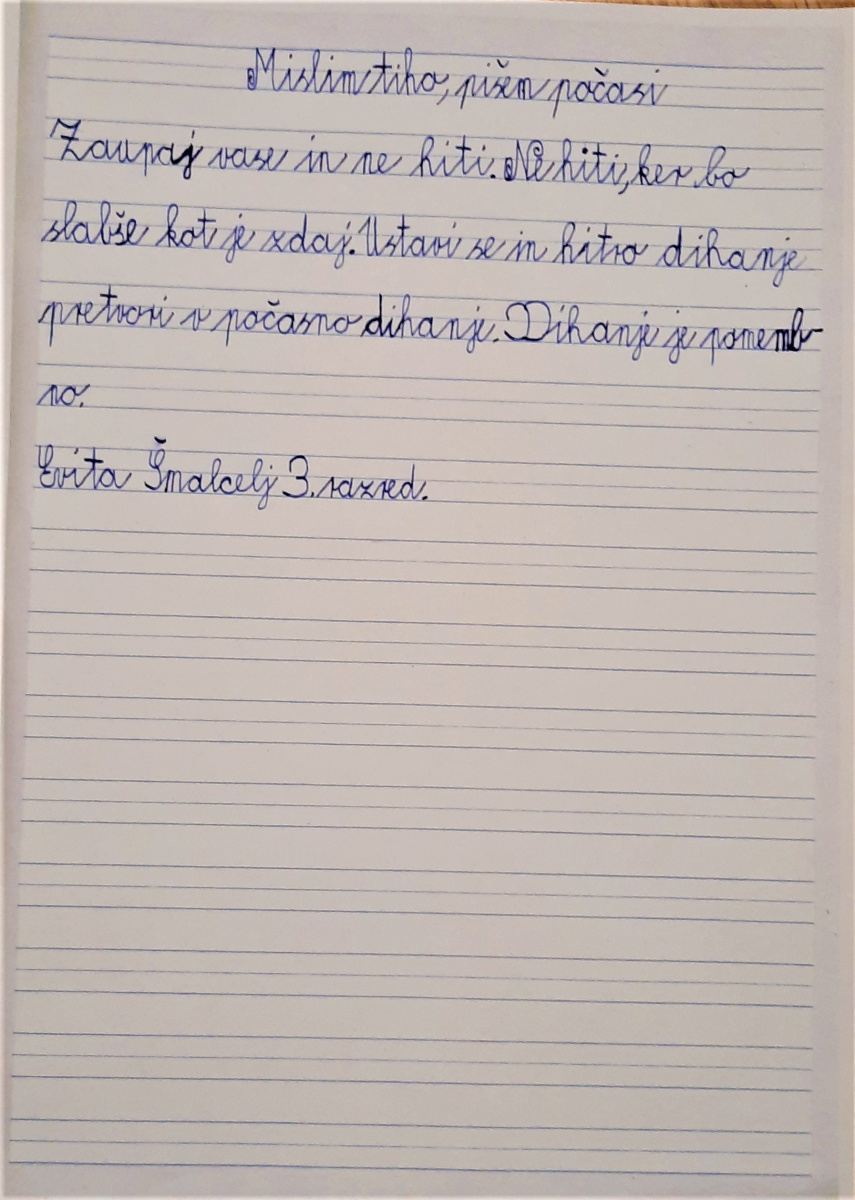 Mislim tiho, pišem počasi
Zaupaj vase in ne hiti. Ne hiti, ker bo
slabše kot je zdaj. Ustavi se in hitro dihanje
pretvori v počasno dihanje. Dihanje je pomemb-
no.
Evita Šmalcelj 3. razred.